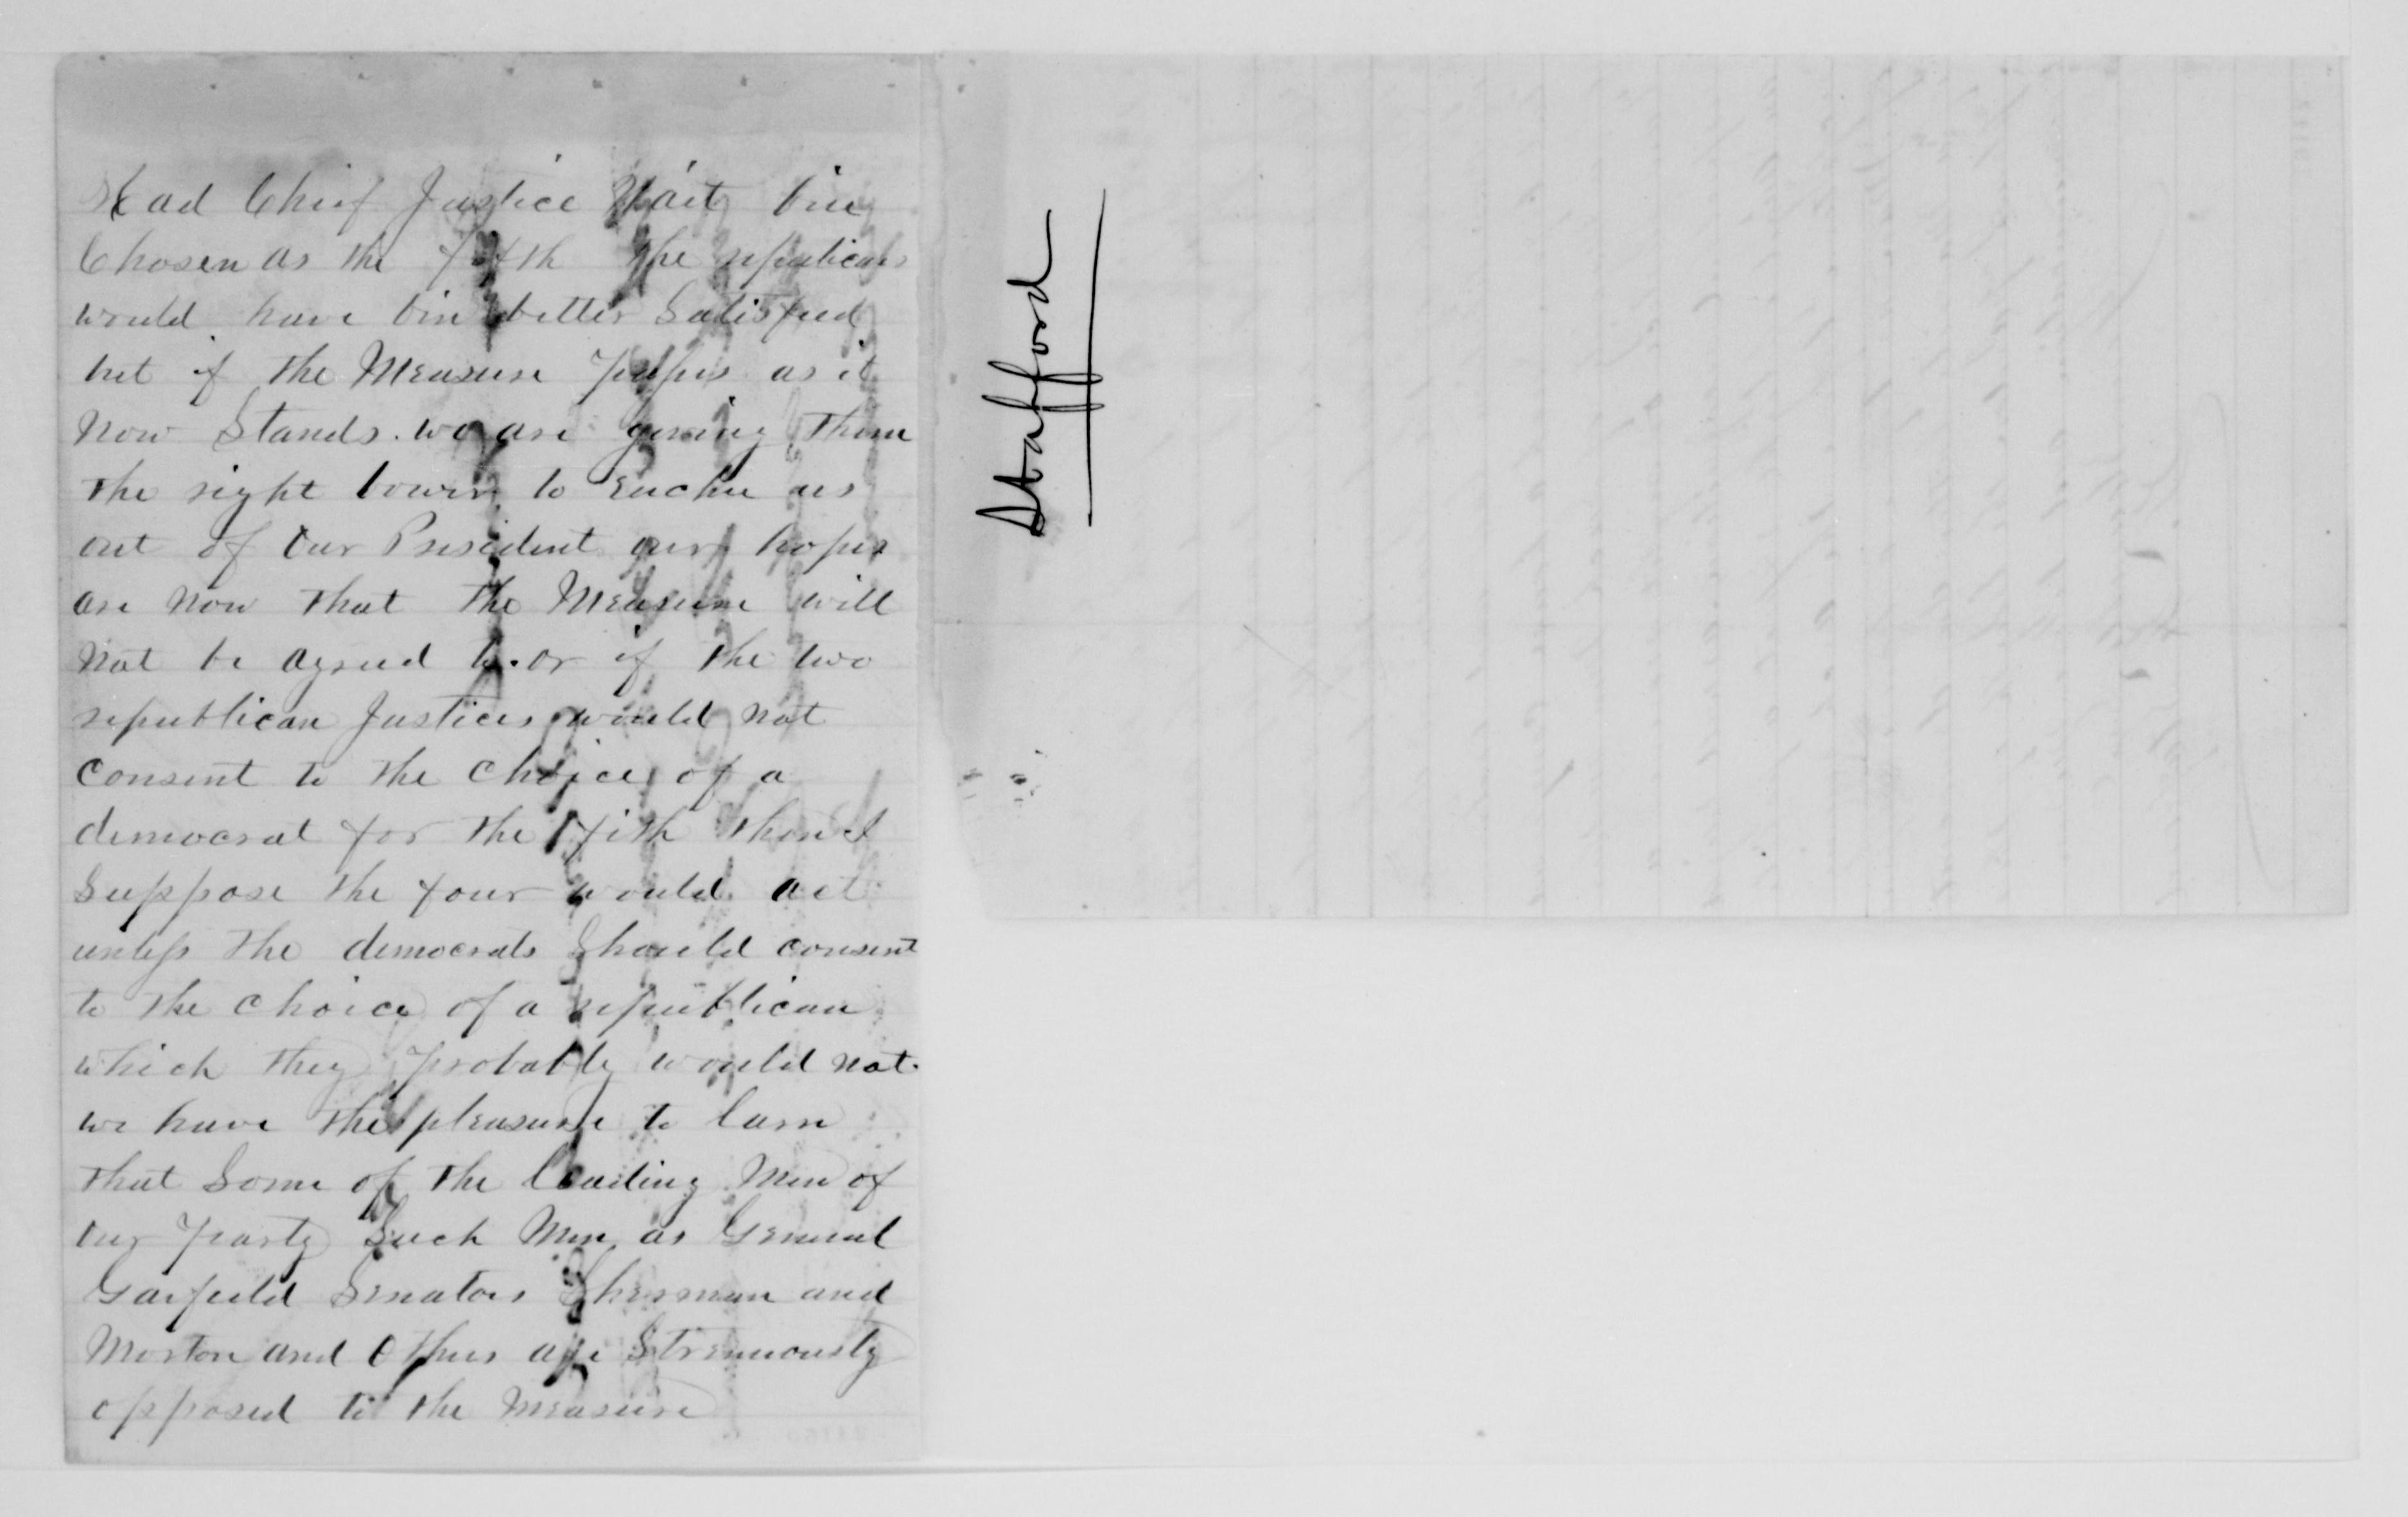 Had Chief Justice Wait bin
Chosen as the fifth the republicans
would have bin better Satisfied
but if the Measure passes as it
Now Stands. we are giving them
the right bower to Euchre us
out of Our President our hopes
are Now that the Measure will
Not be agreed to. or if the two
republican Justices would Not
Consent to the Choice of a
democrat for the fifth then I
Suppose the four would act
unless the democrats Should consent
to the Choice of a republican
which they probably would Not.
we have the pleasure to larn
that Some of the leading Men of
Our party Such Men as General
Garfield Senators Sherman and
Morton and Others are Strenuously
opposed to the Measure
Stafford